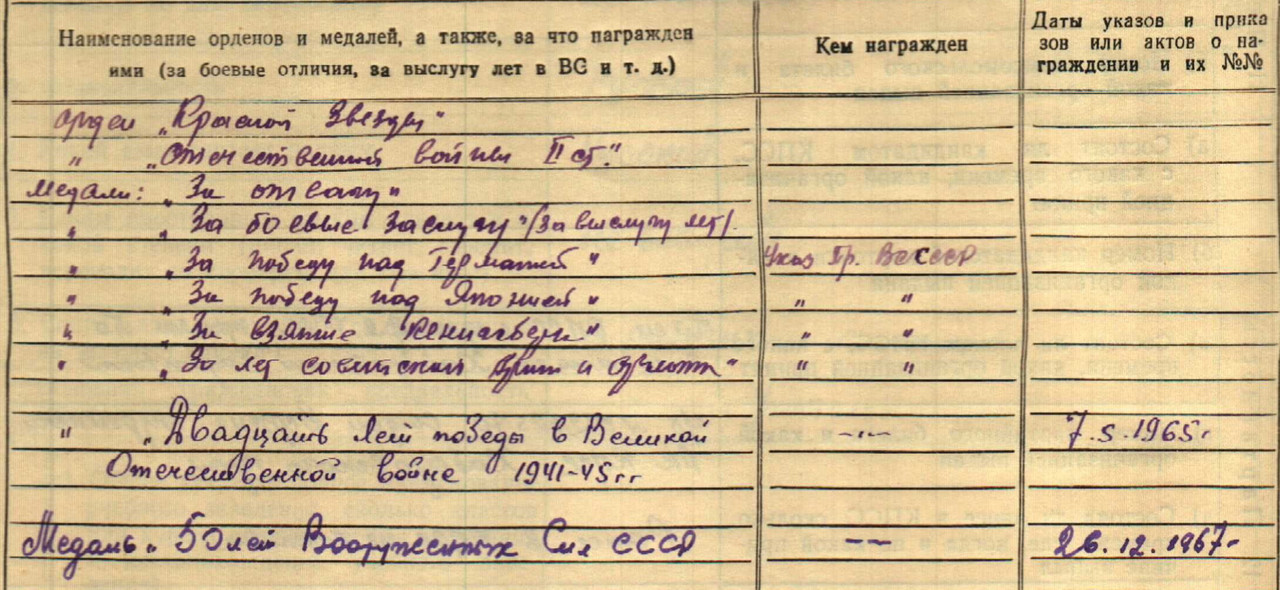 Наименование орденов и медалей, а также, за что награжден
ими (за боевые отличия, за выслугу лет в ВС и т. д.)
Кем награжден
Даты указов и прика
зов или актов о на-
граждении и их №№
орден „Красной Звезды"
„ „Отечественной войны II ст."
Медали: „За отвагу"
„ „За боевые заслуги" (за выслугу лет).
„ „За победу над Германией" Указ Пр. ВС СССР
„ „За победу над Японией" „ „
„ „За взятие Кенигсберга" „ „
„ „30 лет советской Армии и Флота" „ „
„ „Двадцать лет победы в Великой -"- 7.5.1965г
Отечественной войне 1941-45гг
Медаль „50 лет Вооруженных Сил СССР -- 26.12.1967г